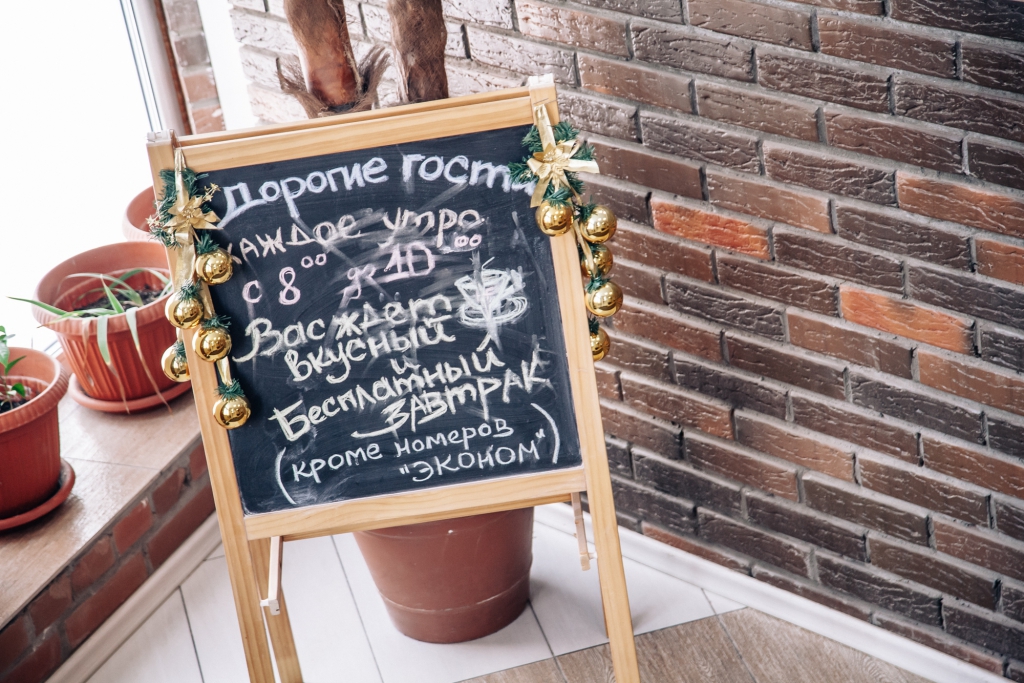 Дорогие гости
каждое утро
с 8⁰⁰ до 10⁰⁰
Вас ждёт
вкусный
и
Бесплатный
ЗАВТРАК
(кроме номеров
"ЭКОНОМ")